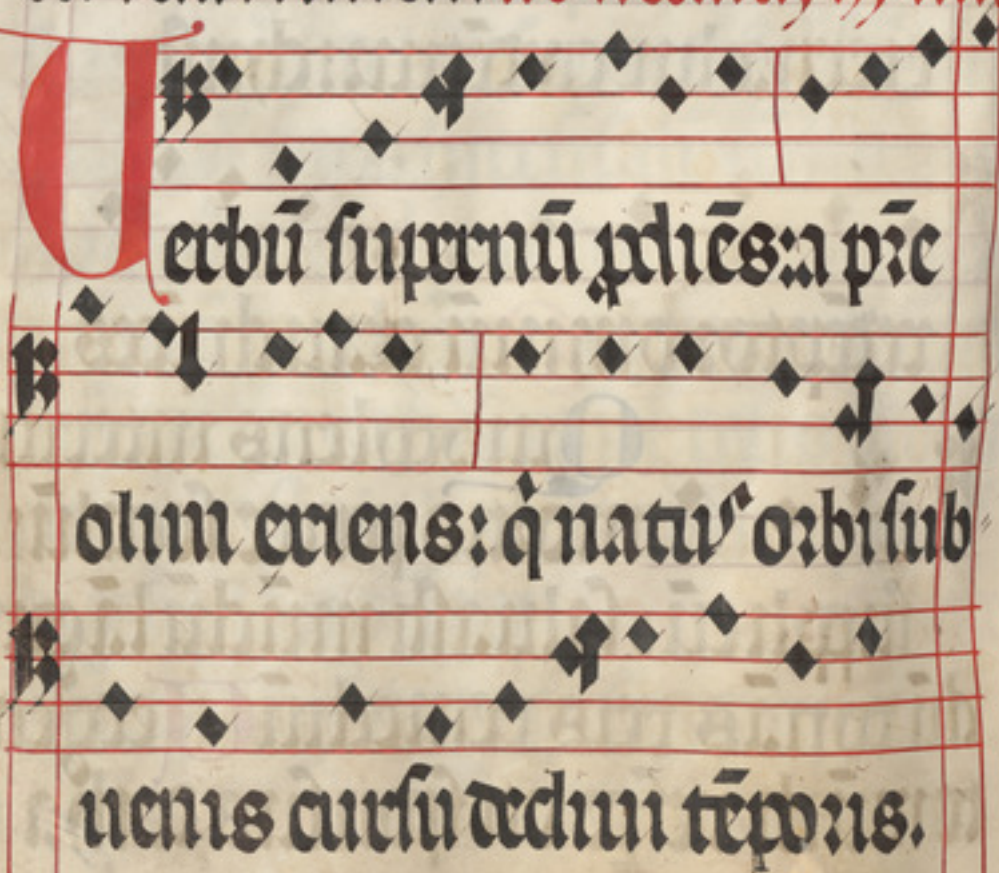 Verbū supernū ꝓdiēs: a pr̄e
olim exiens: qi natus orbi sub
uenis cursu decliui tēporis.